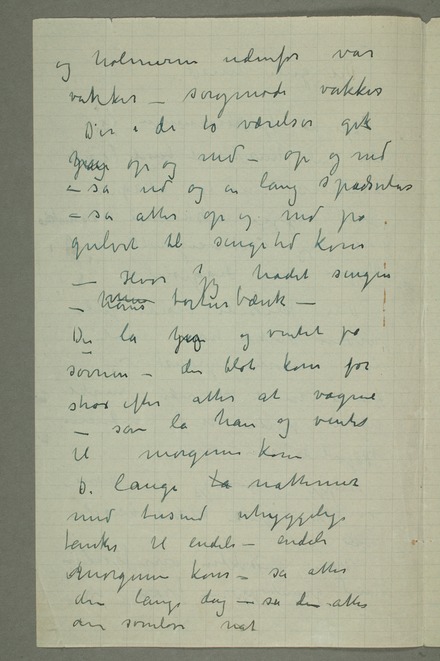 og holmerne udenfor var
vakker – sorgmodi vakker
Der i de to værelser gik
op og ned – op og ned
– så ud og en lang spadsertur
– så atter op og ned på
gulvet til sengetid kom
– Hvor jeg hadet sengen
– min torturbænk –
Der la jeg og ventet på
søvnen – den blot kom for
straks efter atter at vågne
– så la han og ventet
til morgenen kom
D. lange nattimer
med tusind uhyggelige
tanker til endels – endels
morgenen kom – så atter
den lange dag – så den atter
den søvnløse nat